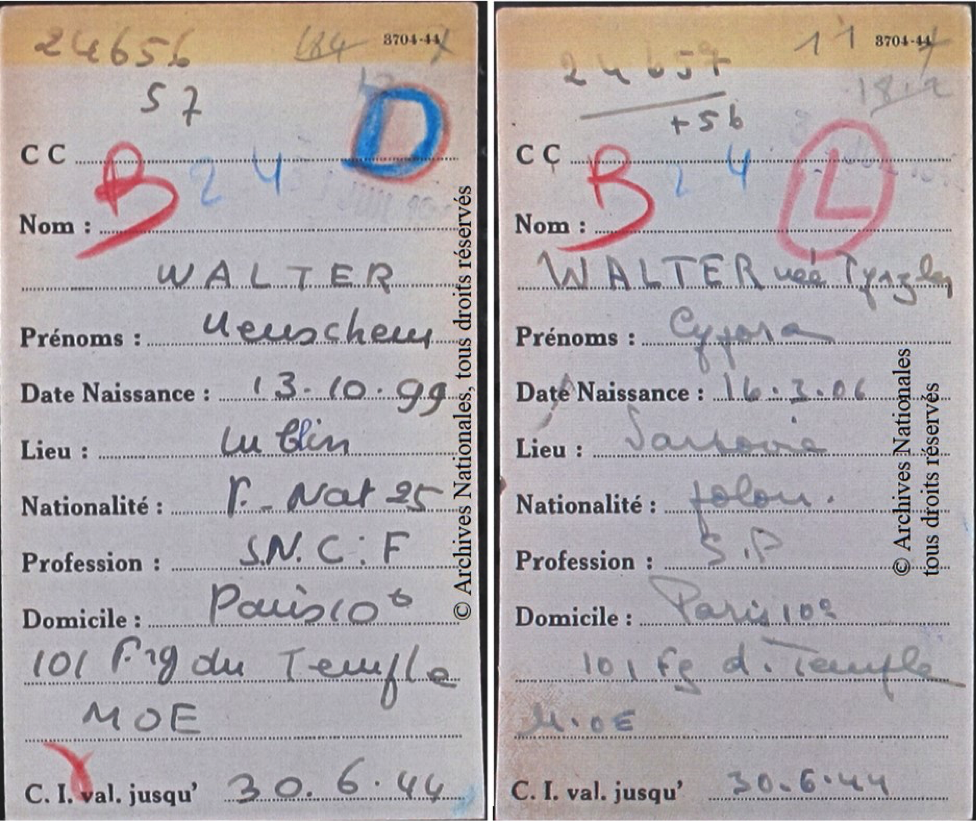 24656
57
184
8704-44
D
C C
B 24
Nom :
WALTER
Prénoms :
Date Naissance : 13.10.99
Lieu : Lublin
Nationalité : F. Nat 25
Profession : S.N.C.F
Domicile : Paris 10e
101 Fg du Temple
MOE
C. I. val. jusqu' 30.6.44
© Archives Nationales, tous droits réservés
24657
+56
11
8704-44
18.2
L
C C
B 24
Nom :
WALTER née
Prénoms : Cypora
Date Naissance : 16.3.06
Lieu :
Nationalité : polon.
Profession : S.P
Domicile : Paris 10e
101 Fg d. Temple
M.OE
C. I. val. jusqu' 30.6.44
© Archives Nationales
tous droits réservés